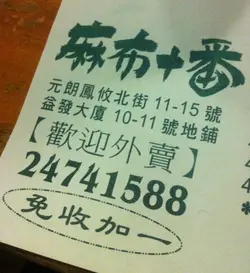 麻布十番
元朗鳳攸北街 11-15 號
益發大廈 10-11 號地鋪
【歡迎外賣】
24741588
免收加一